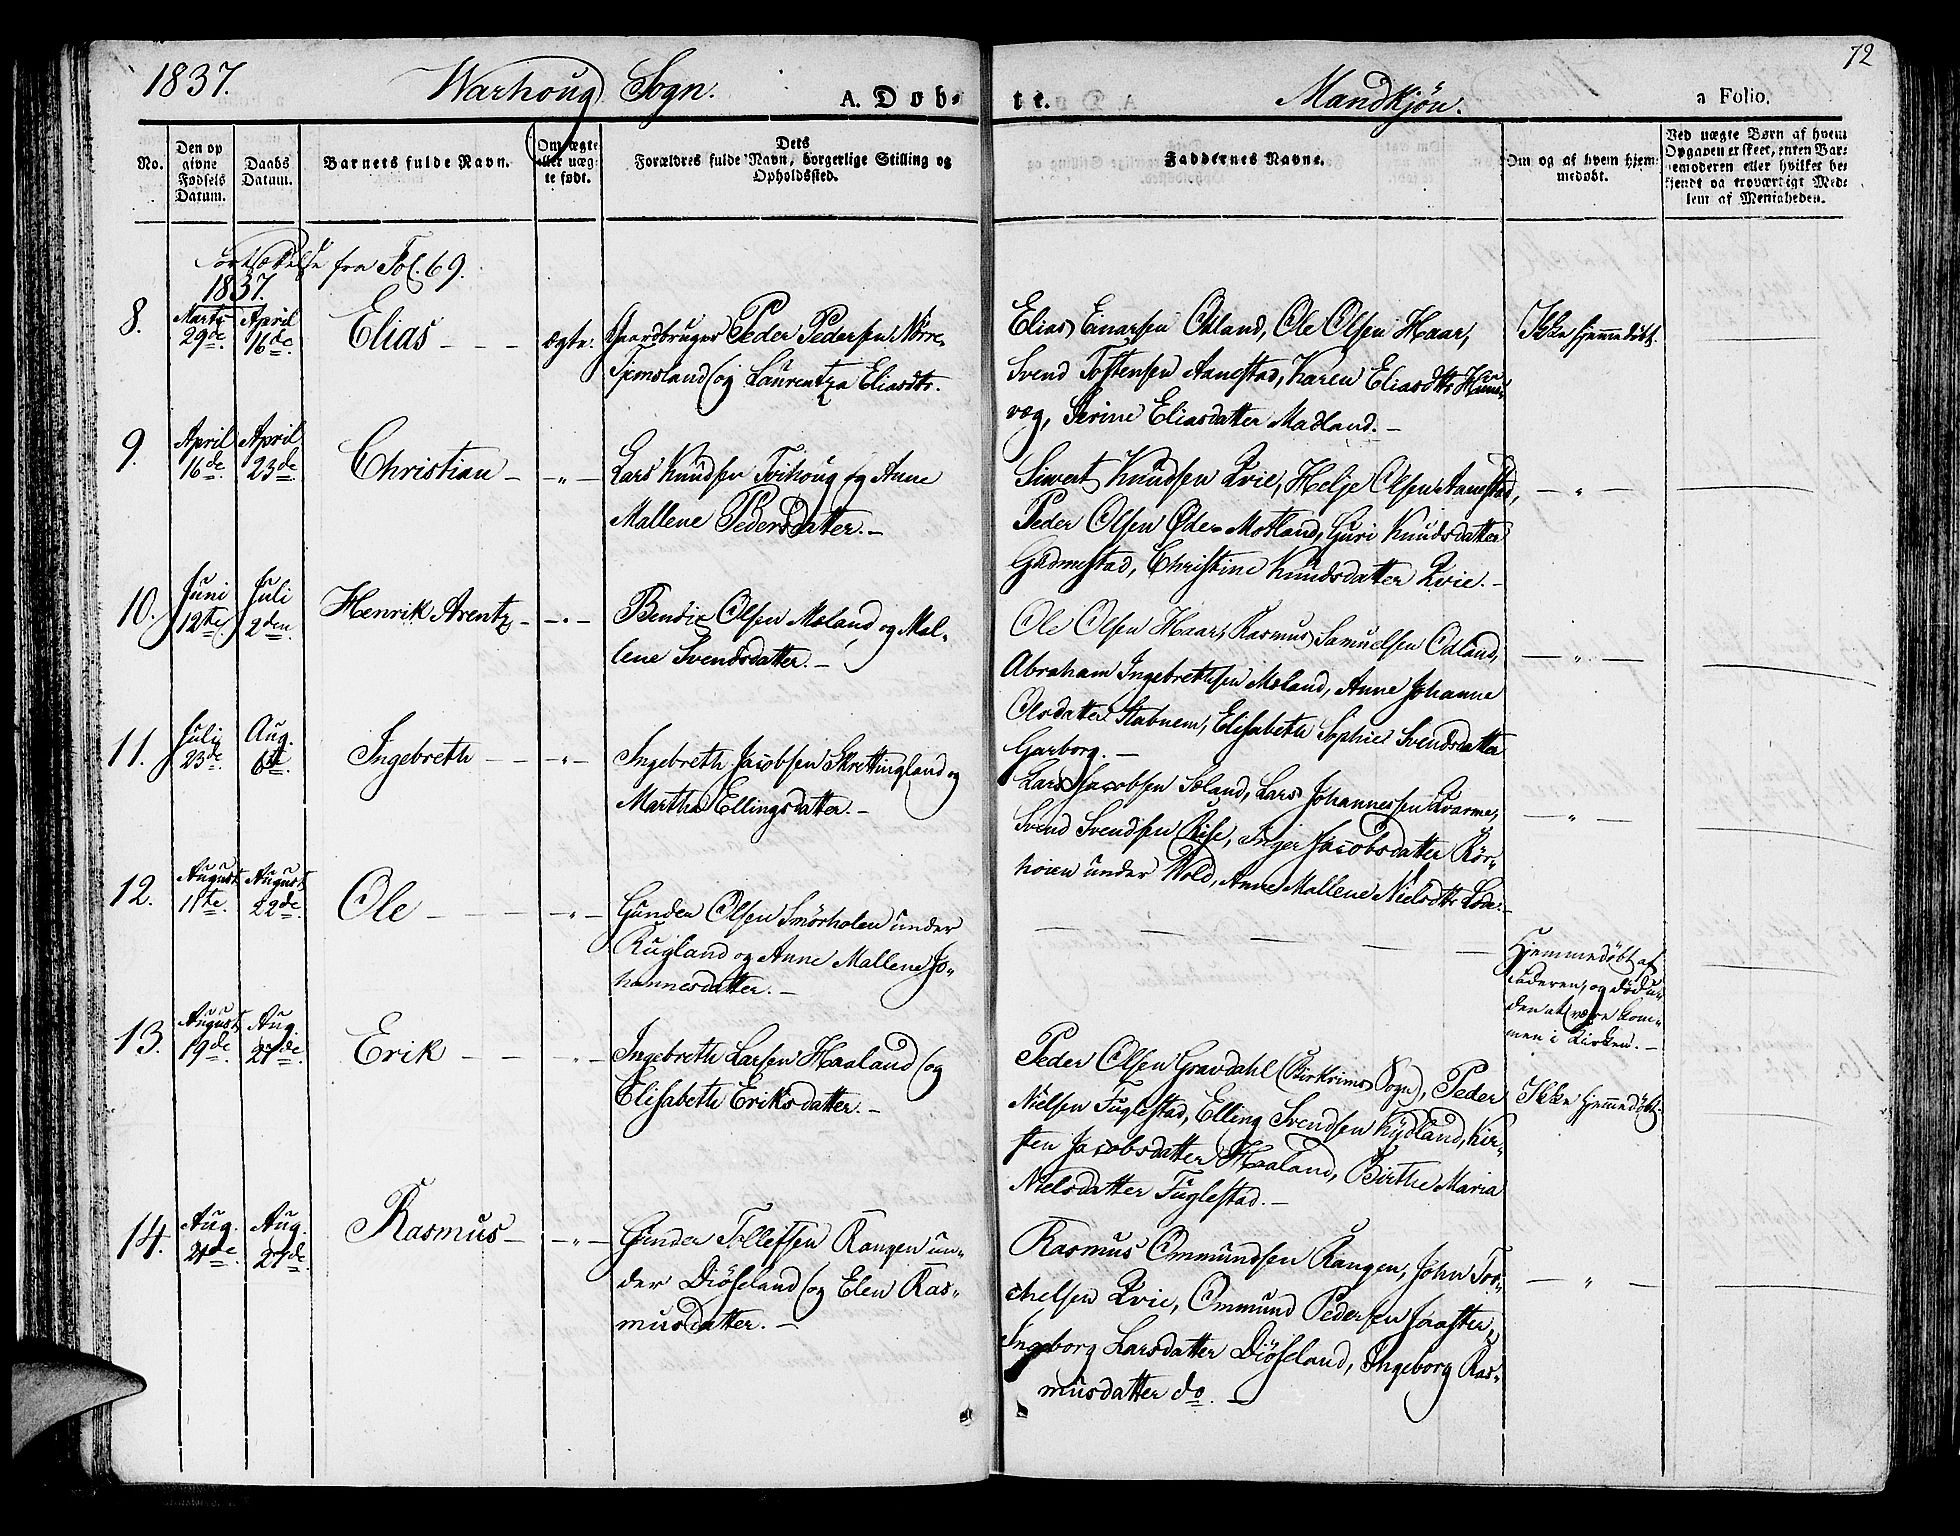 1837. Warhoug Sogn. A. Døb-
te. Mandkjøn. a Folio. 72
No.
Den op
givne
Fødsels
Datum.
Daabs
Datum.
Barnets fulde Navn.
Om ægte
eller uæg-
te født.
Dets
Forældres fulde Navn, borgerlige Stilling og
Opholdssted.
Faddernes Navne.
Om og af hvem hjem-
medøbt.
Ved uægte Børn af hvem
Opgaven er skeet, enten Bar-
nemoderen eller hvilket be-
kjendt og troværdigt Med-
lem af Menigheden.
Fortsættelse fra Fol. 69.
1837.
8.
Marts
29de
April
16de
Elias
ægte.
Gaardbruger Peder Pedersen Nörre
og Laurentza Eliasdtr.
Elias Einarsen Odland, Ole Olsen Haar,
Svend Tostensen Aanestad, Karen Eliasdttr Hum-
væg, Serine Eliasdatter Madland. –
Ikke hjemmedøbt.
9.
April
16de
April
23de
Christian
– „ –
Lars Knudsen Tvihoug og Anne
Mallene Pedersdatter. –
Siwert Knudsen Qvie, Helge Olsen Aanestad,
Peder Olsen Øde-Motland, Guri Knudsdatter
Gudmestad, Christine Knudsdatter Qvie. –
– „ –
10.
Juni
12te
Juli
2den
Henrik Arentz
– „ –
Bendix Olsen Moland og Mal-
lene Svendsdatter. –
Ole Olsen Haar, Rasmus Samuelsen Odland,
Abraham Ingebrethsen Moland, Anne Johanne
Olsdatter Stabnem, Elisabeth Sophie Svendsdatter
Garborg. –
– „ –
11.
Juli
23de
Aug.
6te
Ingebreth
– „ –
Ingebreth Jacobsen Skrettingland og
Martha Ellingsdatter. –
Lars Jacobsen Soland, Lars Johannessen Qvarme,
Svend Svendsen Rise, Inger Jacobsdatter Rör-
hoien under Wold, Anne Mallene Nielsdttr Lode.
– „ –
12.
August
11te
August
22de
Ole
– „ –
Gunder Olsen Smörholen under
Rugland og Anne Mallene Jo-
hannesdatter. –
Hjemmedøbt af
Faderen, og død u-
den at være kom-
men i Kirken. –
13.
August
19de
Aug.
27de
Erik
„
Ingebreth Larsen Haaland og
Elisabeth Eriksdatter. –
Peder Olsen Gravdahl (Birkrims Sogn), Peder
Nielsen Fuglestad, Elling Svendsen Kydland, Kir-
sten Jacobsdatter Haaland, Birthe Maria
Nielsdatter Fuglestad. –
Ikke hjemmedøbt.
14.
Aug.
21de
Aug.
27de
Rasmus
– „ –
Gunder Tollefsen Rangen un-
der Diöseland og Elen Ras-
musdatter. –
Rasmus Ommundsen Rangen, John Tor-
chelsen Qvie, Ommund Pedersen
Ingeborg Larsdatter Diöseland, Ingeborg Ras-
musdatter do. –
– „ –